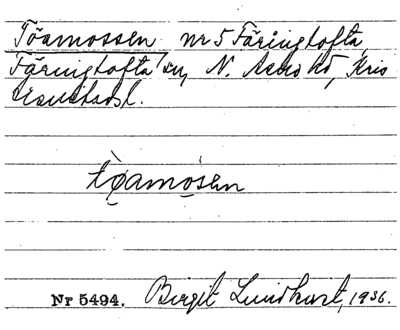 Töamossen nr 5 Färingtofta,
Färingtofta sn, N. Åsbo hd, Kris
tianstads l.
tøamosen
Nr 5494. Birgit Lundkvist, 1936.